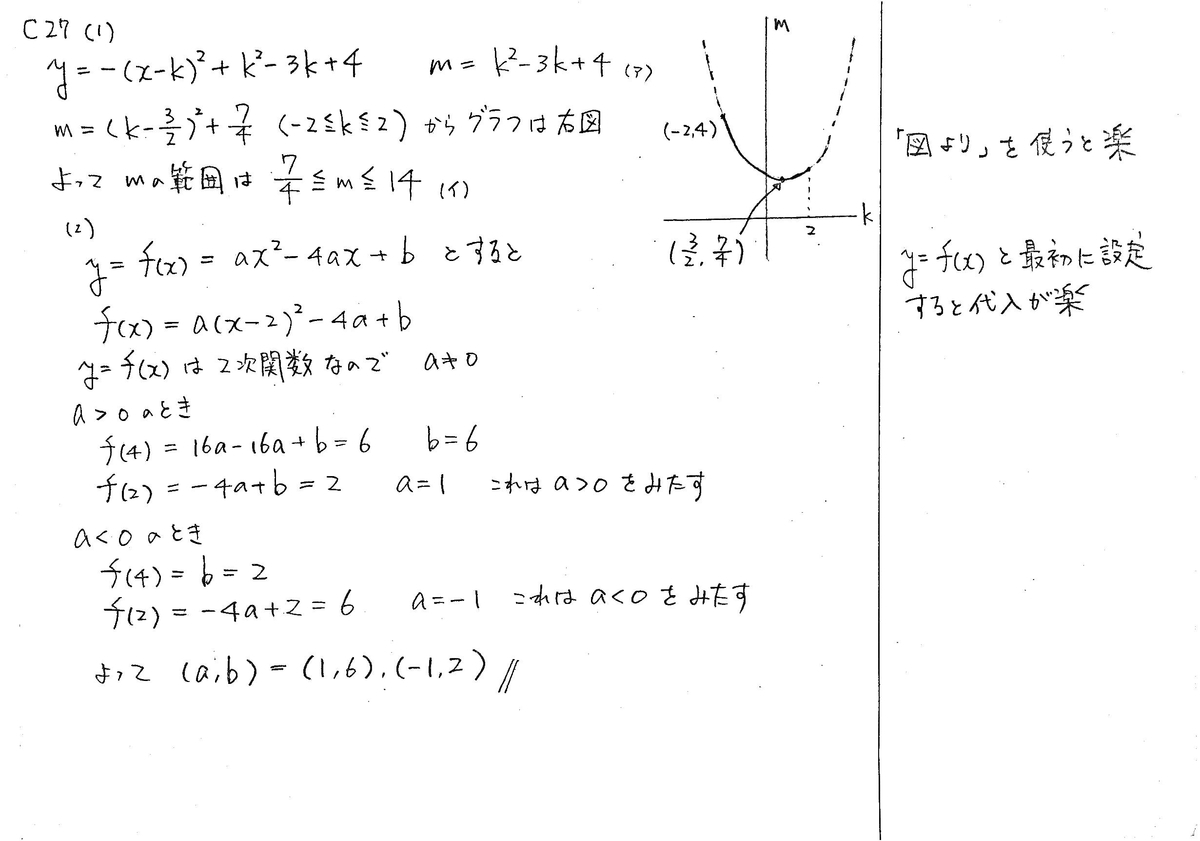 C27 (1)
y=-(x-k)²+k²-3k+4 m=k²-3k+4 (ア)
m=(k-3/2)²+7/4 (-2≦k≦2) からグラフは右図
よって mの範囲は 7/4≦m≦14 (イ)
m
(-2,4)
k
2
(3/2, 7/4)
(2)
y=f(x)=ax²-4ax+b とすると
f(x)=a(x-2)²-4a+b
y=f(x)は2次関数なので a≠0
a>0のとき
f(4)=16a-16a+b=6 b=6
f(2)=-4a+b=2 a=1 これはa>0をみたす
a<0のとき
f(4)=b=2
f(2)=-4a+2=6 a=-1 これはa<0をみたす
よって (a,b)=(1,6),(-1,2)//
「図より」を使うと楽
y=f(x)と最初に設定
すると代入が楽